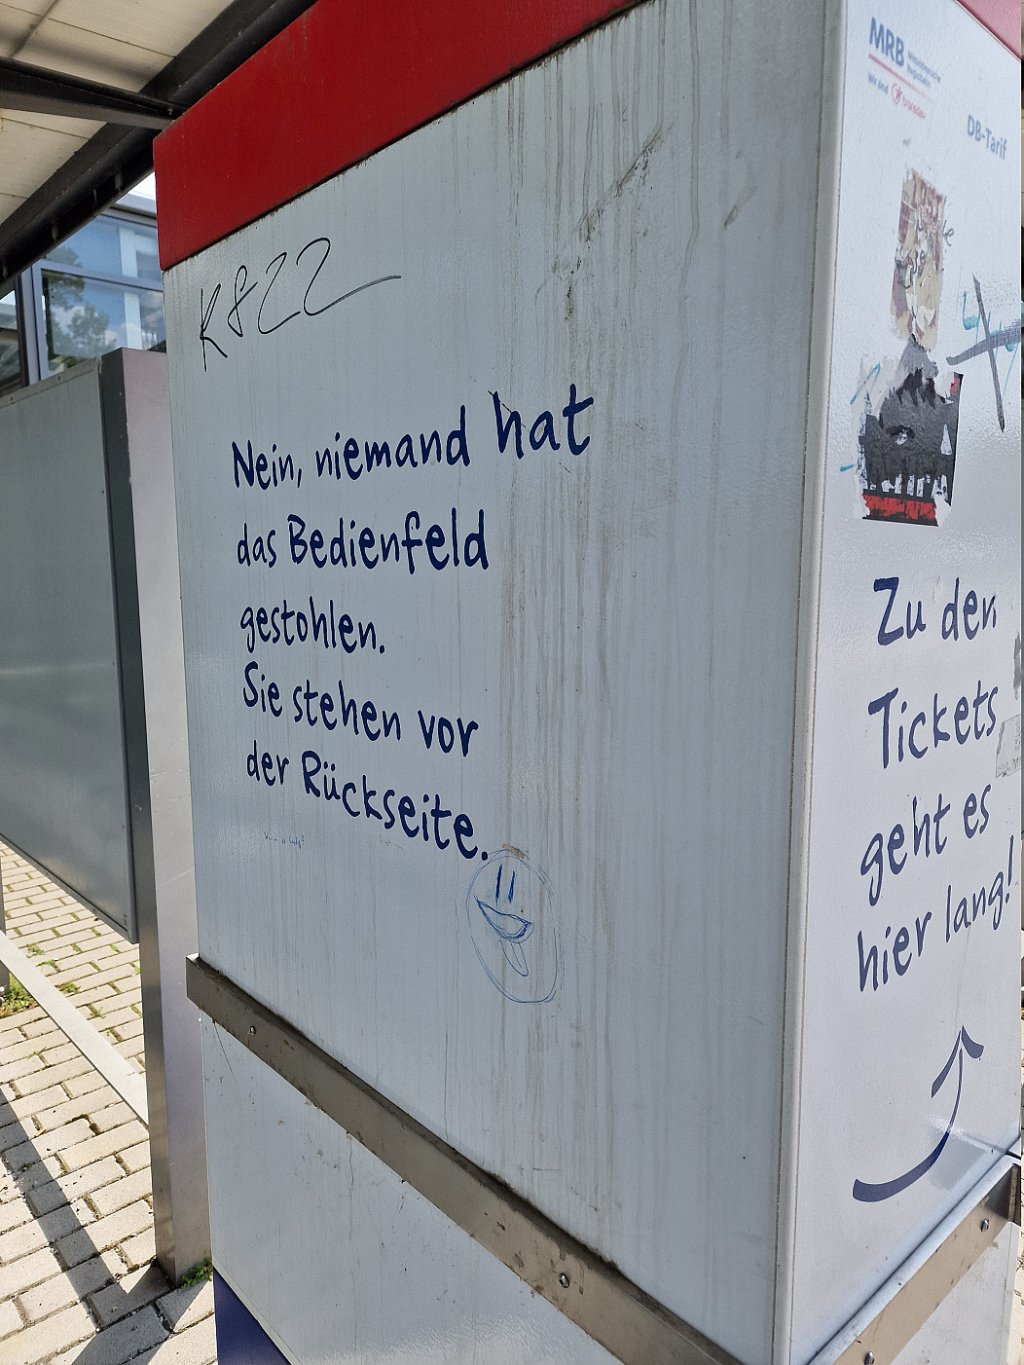 K822
Nein, niemand hat
das Bedienfeld
gestohlen.
Sie stehen vor
der Rückseite.
MRB
Mitteldeutsche
Regiobahn
Wir sind transdev
DB-Tarif
Zu den
Tickets
geht es
hier lang!